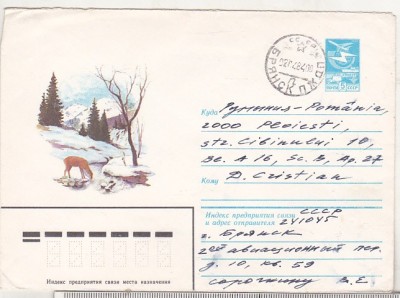 БРЯНСК
Куда Румыния-România,
2000 Ploiesti,
str. Cibinului 10,
Bl. A 16, Sc. B, Ap. 27
Кому D. Cristian
Индекс предприятия связи СССР
и адрес отправителя 241045
г. Брянск
2ой авиационный пер.
д. 10, кв. 59
В.Е
Индекс предприятия связи места назначения